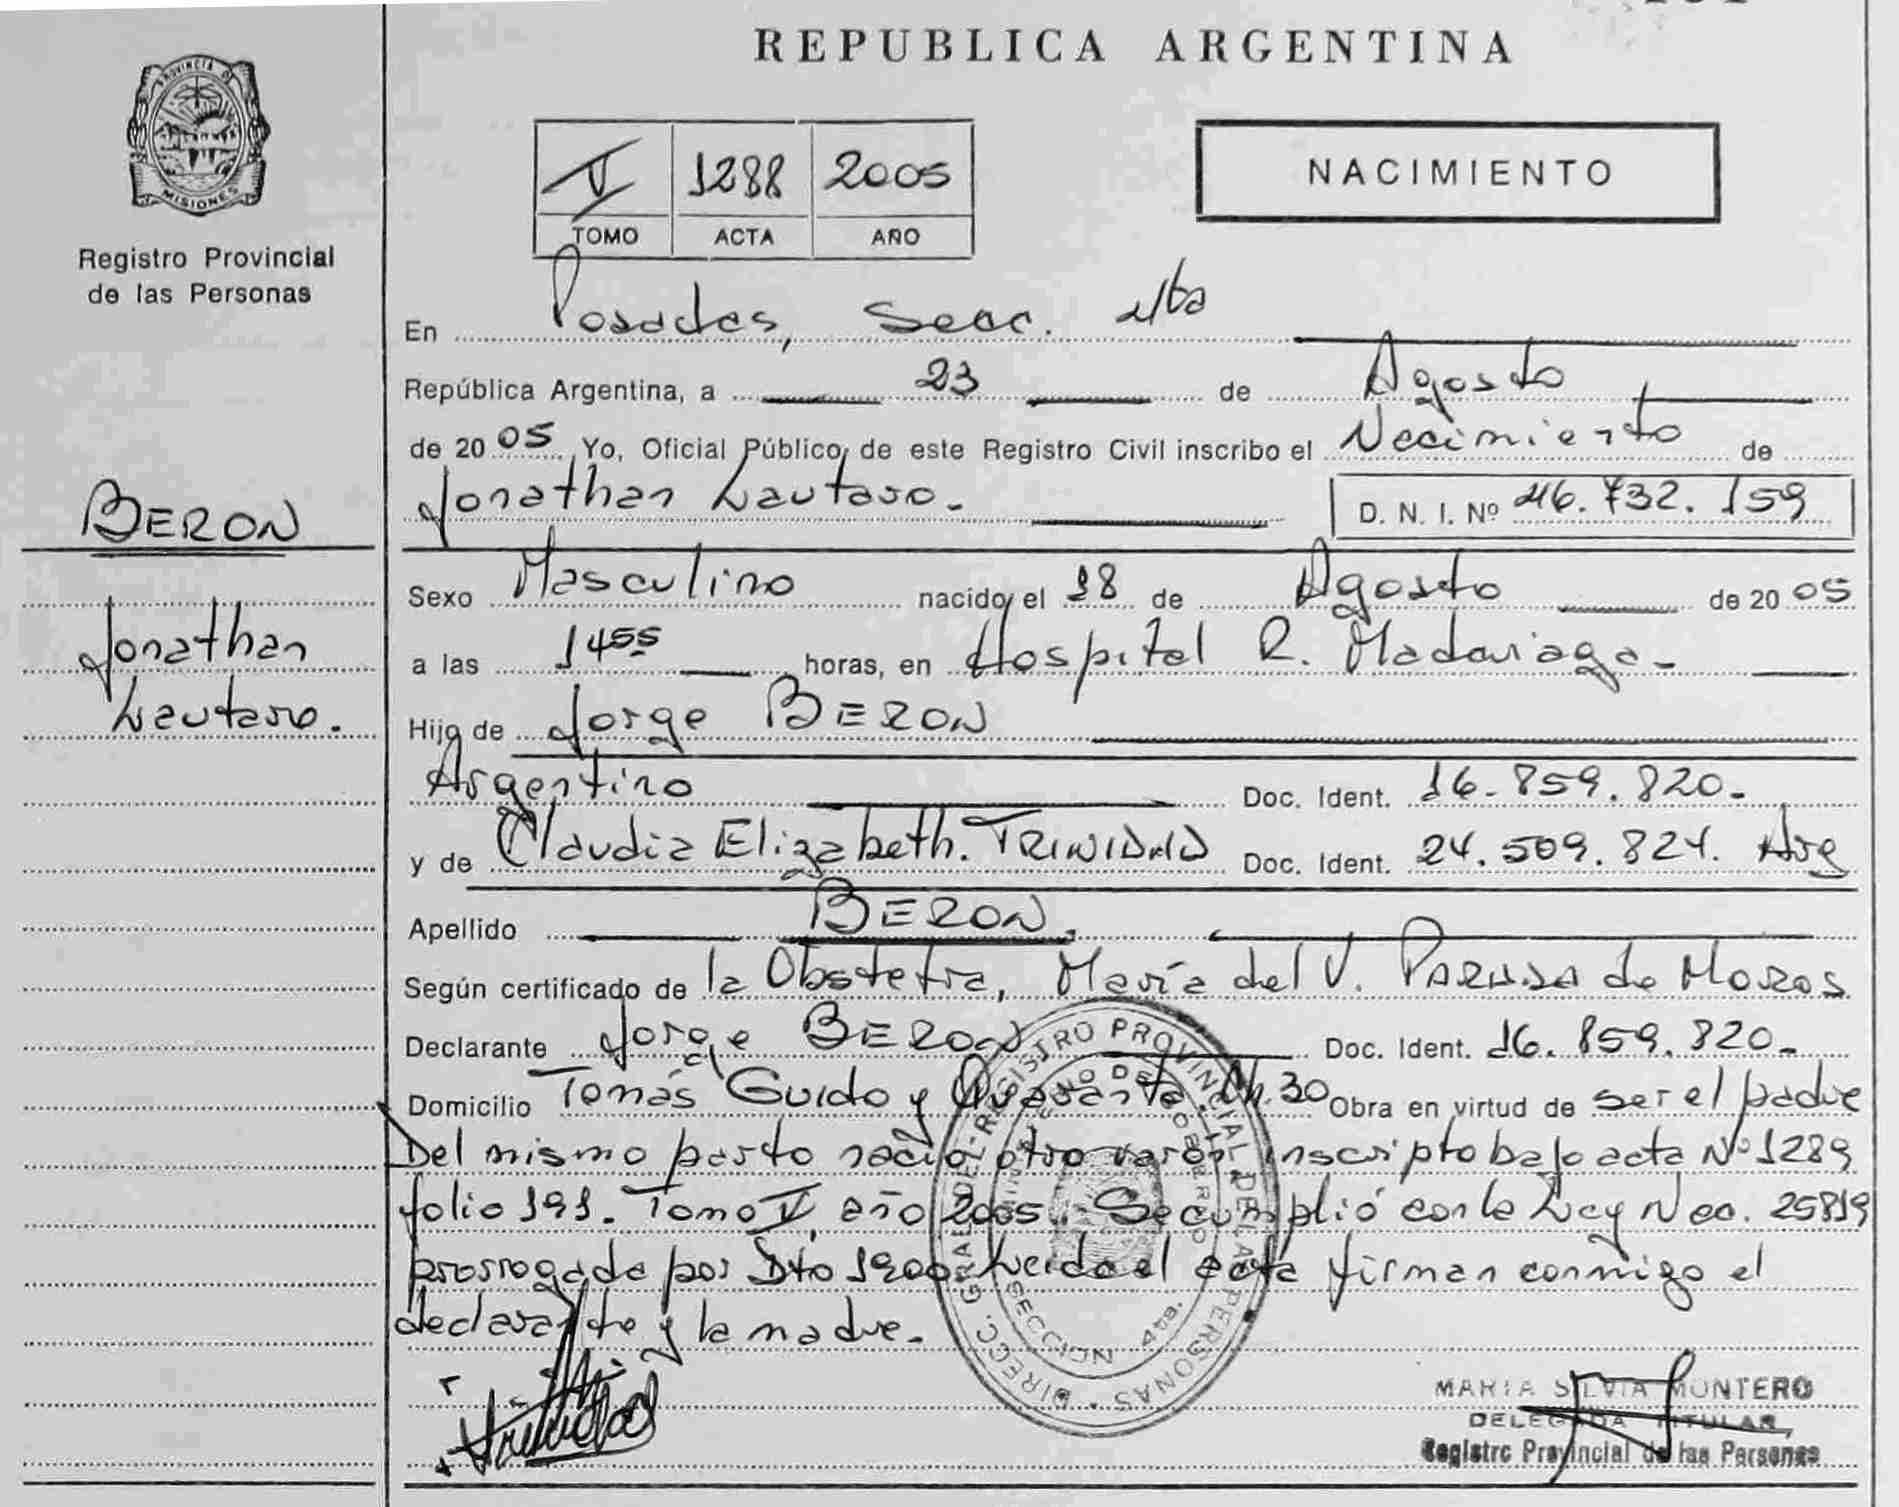 REPUBLICA ARGENTINA
PROVINCIA DE MISIONES
Registro Provincial
de las Personas
V 1288 2005
TOMO ACTA AÑO
NACIMIENTO
En Posadas, Secc. 4ta
República Argentina, a 23 de Agosto
de 20 05 Yo, Oficial Público de este Registro Civil inscribo el Nacimiento de
Jonathan Lautaro. D. N. I. Nº 46.732.159
BERON
Jonathan
Lautaro.
Sexo Masculino nacido el 18 de Agosto de 20 05
a las 14 55 horas, en Hospital R. Madariaga.
Hijo de Jorge BERON
Argentino Doc. Ident. 16.859.820.
y de Claudia Elizabeth. TRINIDAD Doc. Ident. 24.509.824. Arg
Apellido BERON.
Según certificado de la Obstetra, María del V. de Moras
Declarante Jorge BERON Doc. Ident. 16.859.820.
Domicilio Tomás Guido y Ch. 30 Obra en virtud de ser el padre
Del mismo parto nació otro varón inscripto bajo acta Nº 1289
folio 191. Tomo V, año 2005. Se cumplió con la Ley Nac. 25819
prorrogada por Dto 1900 Leida el acta firman conmigo el
declarante y la madre.
DIRECC. GRAL DEL REGISTRO PROVINCIAL DE LAS PERSONAS
MINISTERIO DE GOBIERNO
SECCION 4ta.
MARIA SILVIA MONTERO
DELEGADA TITULAR
Registro Provincial de las Personas